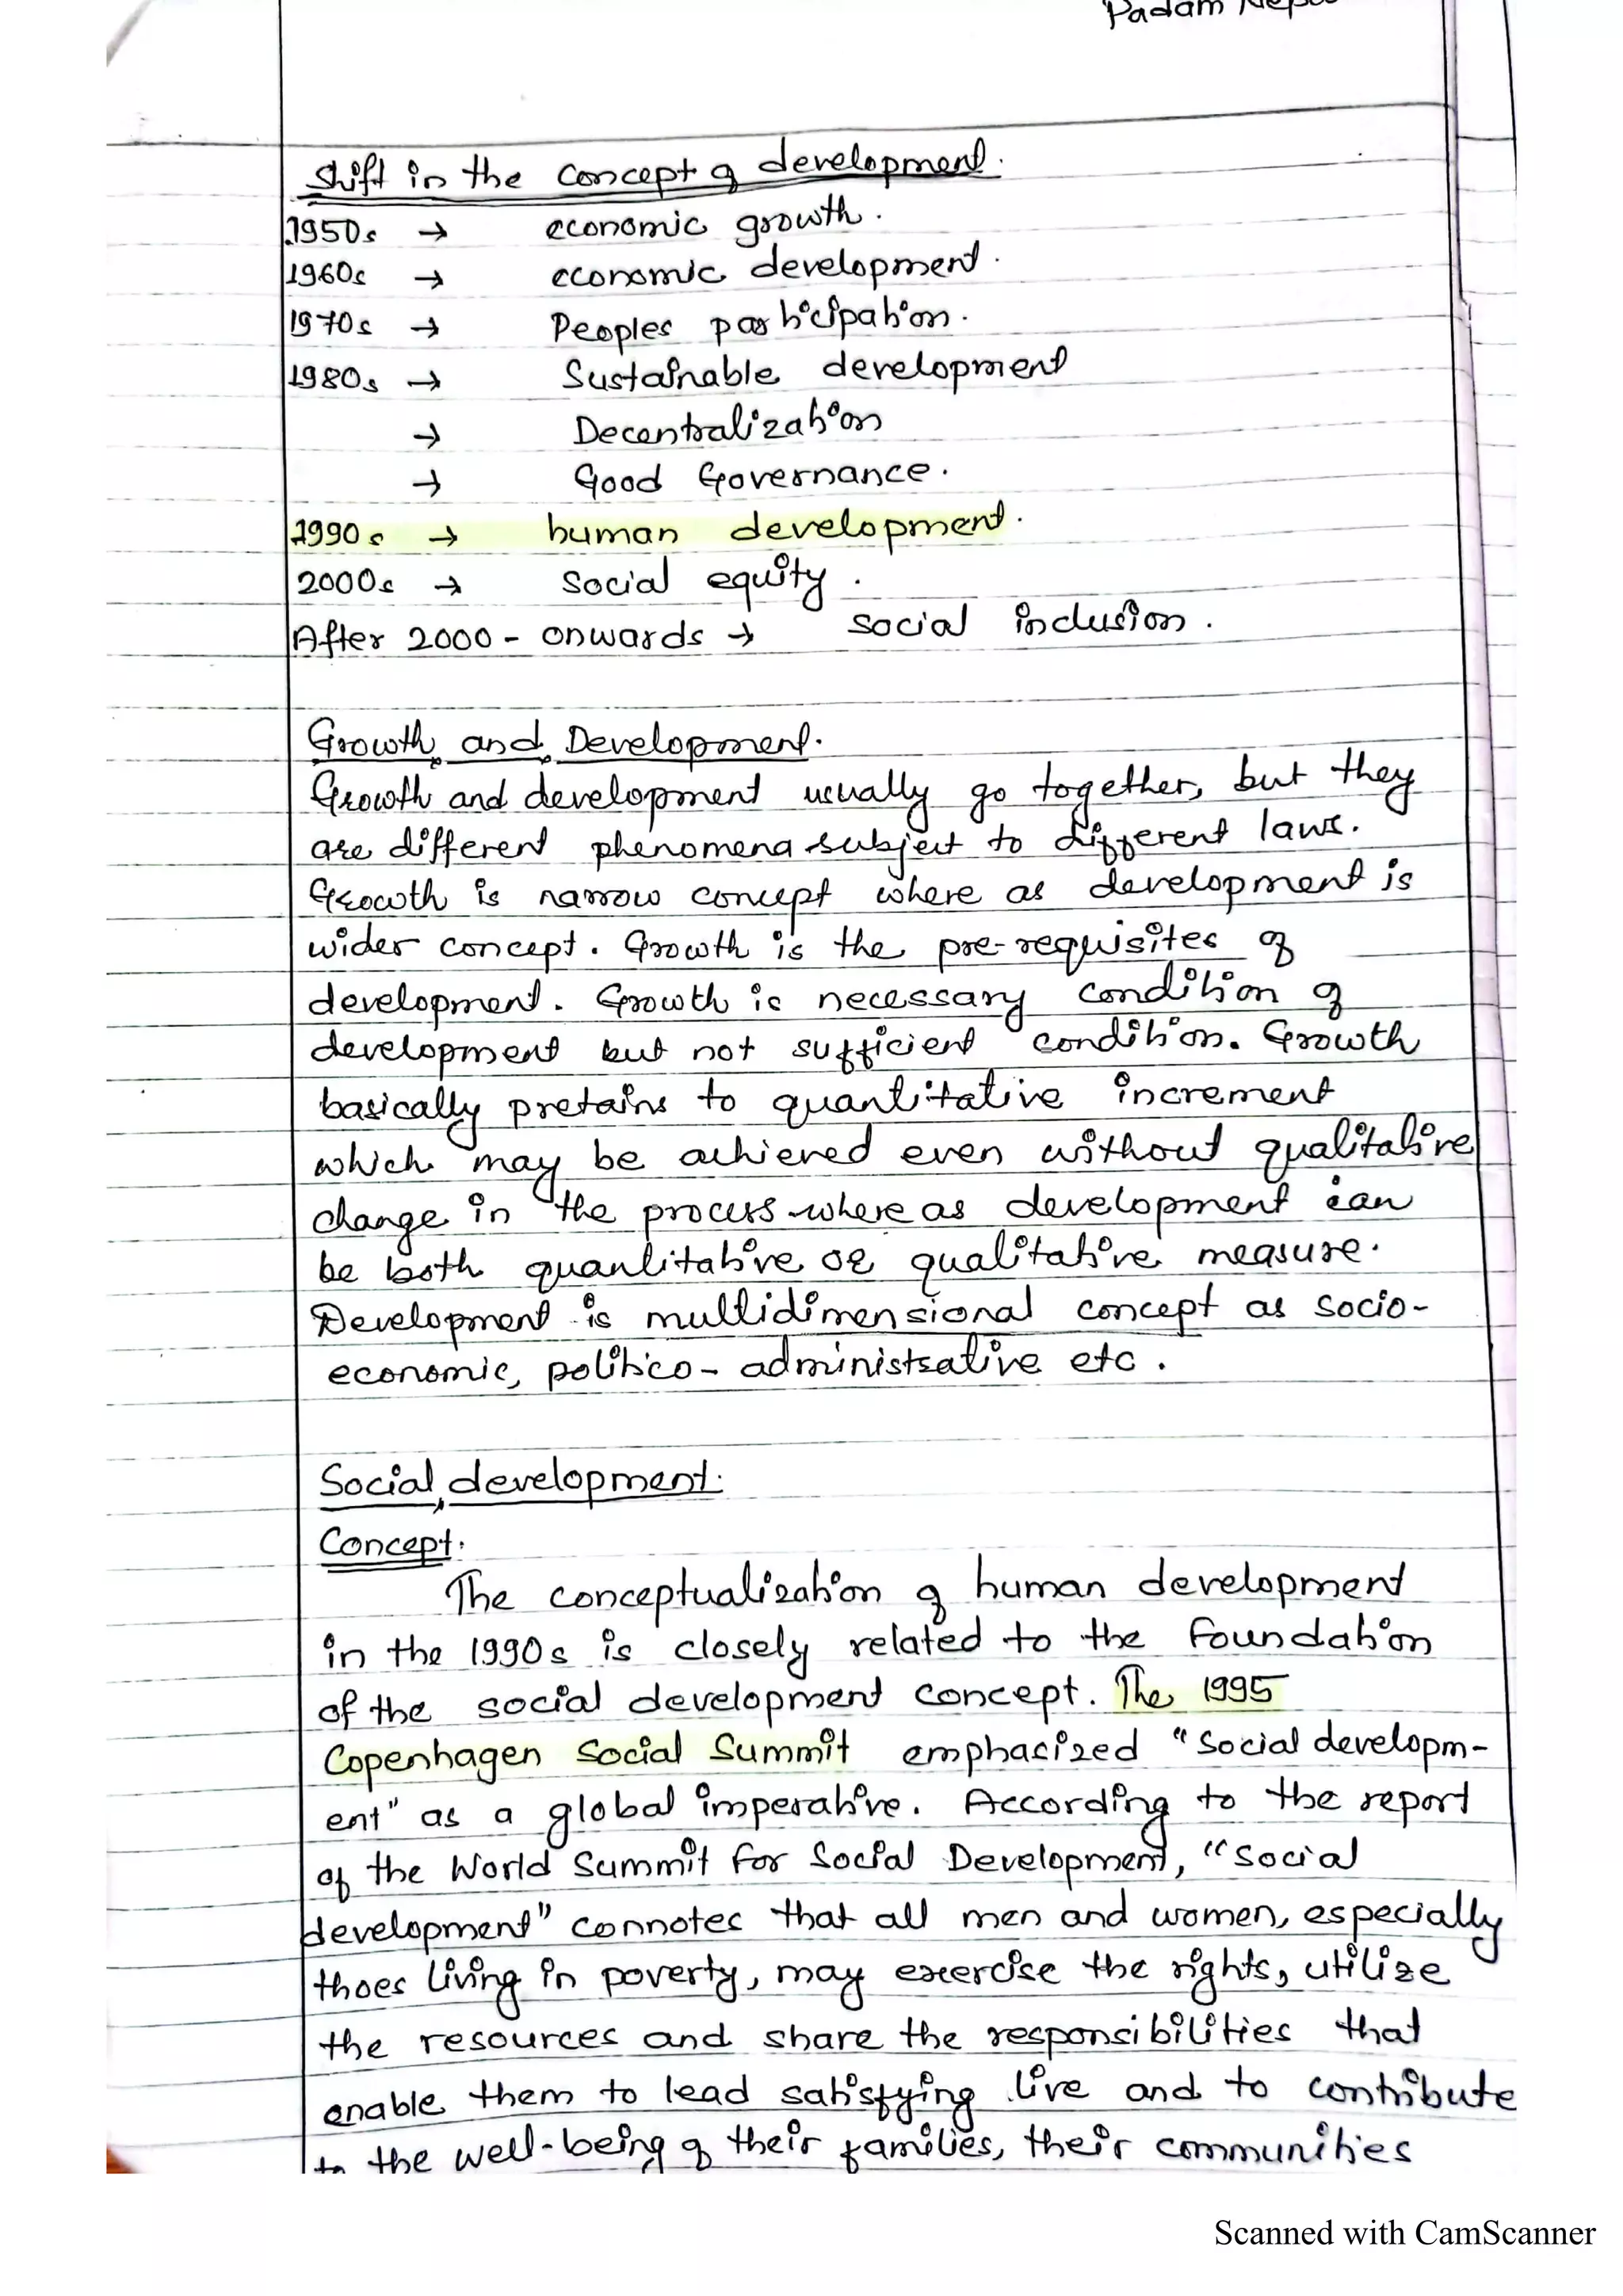 Padam
Shift in the concept of development.
1950s → economic growth.
1960s → economic development.
1970s → Peoples participation.
1980s → Sustainable development
→ Decentralization
→ Good Governance.
1990s → human development.
2000s → Social equity.
After 2000 - onwards → social inclusion.
Growth and Development.
Growth and development usually go together, but they
are different phenomena subject to different laws.
Growth is narrow concept where as development is
wider concept. Growth is the pre-requisites of
development. Growth is necessary condition of
development but not sufficient condition. Growth
basically pretains to quantitative increment
which may be achieved even without qualitative
change in the process where as development can
be both quantitative or qualitative measure.
Development is multidimensional concept as socio-
economic, politico-administrative etc.
Social development.
Concept.
The conceptualization of human development
in the 1990s is closely related to the foundation
of the social development concept. The 1995
Copenhagen Social Summit emphasized "Social developm-
ent" as a global imperative. According to the report
of the World Summit for Social Development, "Social
development" connotes that all men and women, especially
thoes living in poverty, may exercise the rights, utilize
the resources and share the responsibilities that
enable them to lead satisfying live and to contribute
to the well-being of their families, their communities
Scanned with CamScanner